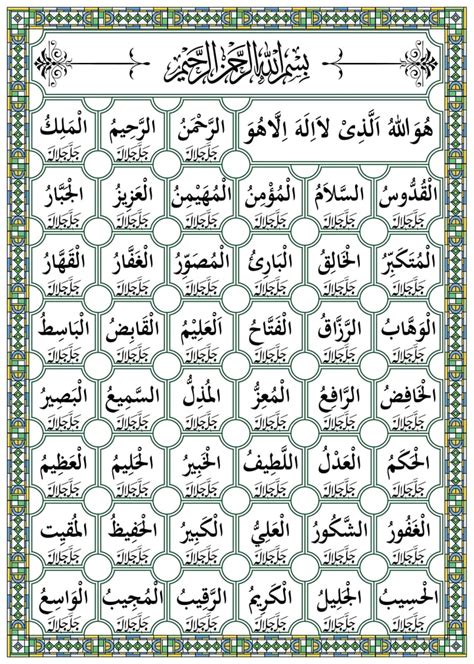 بِسْمِ اللهِ الرَّحْمٰنِ الرَّحِيْمِ
هُوَاللهُ الَّذِىْ لاَاِلَهَ اِلَّاهُوَ الرَّحْمَنُ الرَّحِيمُ الْمَلِكُ
جَلَّ جَلَالَهُ جَلَّ جَلَالَهُ جَلَّ جَلَالَهُ
الْقُدُّوسُ السَّلاَمُ الْمُؤْمِنُ الْمُهَيْمِنُ الْعَزِيزُ الْجَبَّارُ
جَلَّ جَلَالَهُ جَلَّ جَلَالَهُ جَلَّ جَلَالَهُ جَلَّ جَلَالَهُ جَلَّ جَلَالَهُ جَلَّ جَلَالَهُ
الْمُتَكَبِّرُ الْخَالِقُ الْبَارِئُ الْمُصَوِّرُ الْغَفَّارُ الْقَهَّارُ
جَلَّ جَلَالَهُ جَلَّ جَلَالَهُ جَلَّ جَلَالَهُ جَلَّ جَلَالَهُ جَلَّ جَلَالَهُ جَلَّ جَلَالَهُ
الْوَهَّابُ الرَّزَّاقُ الْفَتَّاحُ اَلْعَلِيْمُ الْقَابِضُ الْبَاسِطُ
جَلَّ جَلَالَهُ جَلَّ جَلَالَهُ جَلَّ جَلَالَهُ جَلَّ جَلَالَهُ جَلَّ جَلَالَهُ جَلَّ جَلَالَهُ
الْخَافِضُ الرَّافِعُ الْمُعِزُّ الْمُذِلُّ السَّمِيعُ الْبَصِيرُ
جَلَّ جَلَالَهُ جَلَّ جَلَالَهُ جَلَّ جَلَالَهُ جَلَّ جَلَالَهُ جَلَّ جَلَالَهُ جَلَّ جَلَالَهُ
الْحَكَمُ الْعَدْلُ اللَّطِيفُ الْخَبِيرُ الْحَلِيمُ الْعَظِيمُ
جَلَّ جَلَالَهُ جَلَّ جَلَالَهُ جَلَّ جَلَالَهُ جَلَّ جَلَالَهُ جَلَّ جَلَالَهُ جَلَّ جَلَالَهُ
الْغَفُورُ الشَّكُورُ الْعَلِيُّ الْكَبِيرُ الْحَفِيظُ المُقيِت
جَلَّ جَلَالَهُ جَلَّ جَلَالَهُ جَلَّ جَلَالَهُ جَلَّ جَلَالَهُ جَلَّ جَلَالَهُ جَلَّ جَلَالَهُ
الْحسِيبُ الْجَلِيلُ الْكَرِيمُ الرَّقِيبُ الْمُجِيبُ الْوَاسِعُ
جَلَّ جَلَالَهُ جَلَّ جَلَالَهُ جَلَّ جَلَالَهُ جَلَّ جَلَالَهُ جَلَّ جَلَالَهُ جَلَّ جَلَالَهُ